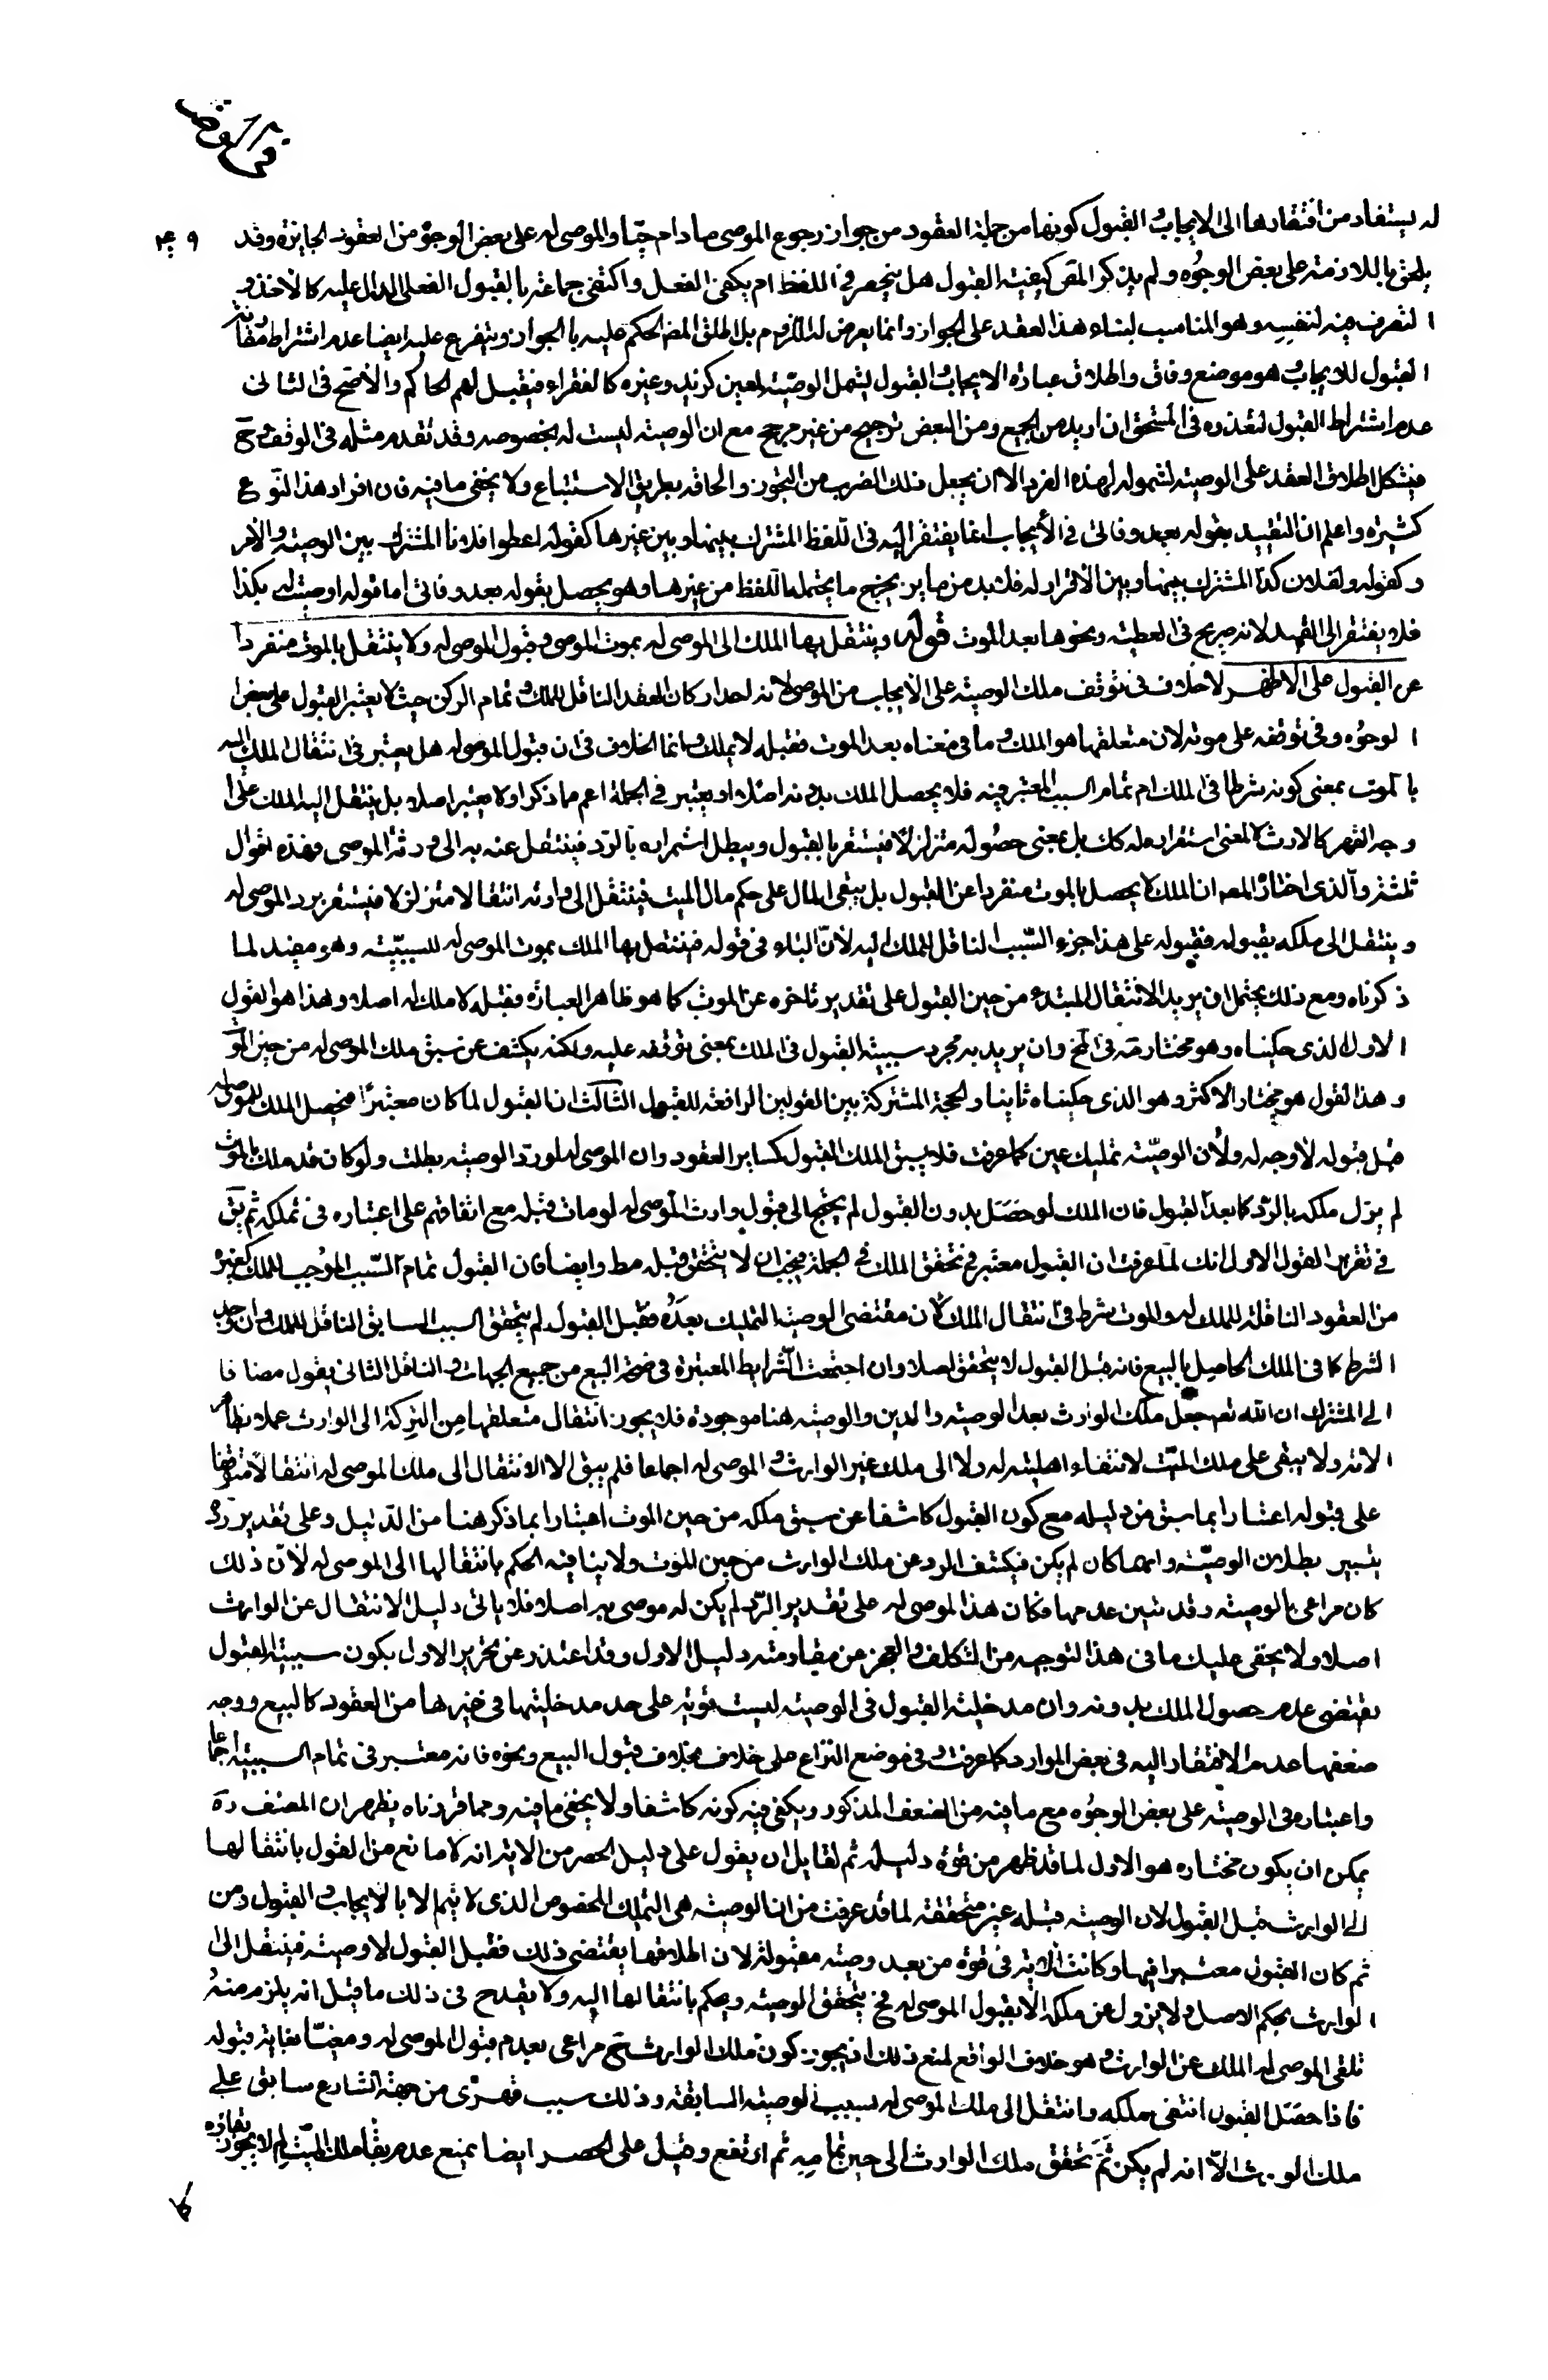 في الوصا
۴۰۹
له يستفاد من افتقارها الى الايجاب والقبول كونها من جملة العقود من جواز رجوع الموصى ما دام حيّا والموصى له على بعض الوجوه من العقود الجايزة وقد
يلحق باللازمة على بعض الوجُوه ولم يذكر المص كيفية القبول هل ينحصر في اللفظ ام يكفى الفعل واكتفى جماعة بالقبول الفعلى الدال عليه كالاخذ و
التصرف فيه لنفسِهِ وهو المناسب لبناء هذا العقد على الجواز وانما يعرض له اللزوم بل اطلق المص الحكم عليه بالجواز ويتفرع عليه ايضا عدم اشتراط مقارنة
القبول للايجاب وهو موضع وفاق واطلاق عبارة الايجاب والقبول ليشمل الوصيّة لمعين كزيد وغيره كالفقراء فيقبل لهم الحاكم والاصَح في الثانى
عدم اشتراط القبول لتعذره في المستحق ان اريد من الجميع ومن البعض ترجيح من غير مرجح مع ان الوصية ليست له بخصوصه وقد تقدم مثله في الوقف وح
فيشكل اطلاق العقد على الوصية لشموله لهذه الفرد الا ان يجعل ذلك الضرب من التجوز والحاقه بطريق الاستتباع ولا يخفى ما فيه فان افراد هذا النوع
كثيرة واعلم ان التقييد بقوله بعد وفاتى في الأيجاب انما يفتقر اليه في اللفظ المشترك بينها وبين غيرها كقوله اعطوا فلانا المشترك بين الوصية والامر
وكقوله ولفلان كذا المشترك بينها وبين الاقرار له فلا بد من ما يز يخرج ما يحتمله اللفظ من غيرها وهو يحصل بقوله بعد وفاتى اما قوله اوصيت له بكذا
فلا يفتقر الى القيد لانه صريح في العطية ونحوها بعد الموت قوله وينتقل بها الملك الى الموصى له بموت الموصى وقبول الموصى له ولا ينتقل بالموت منفردا
عن القبول على الاظهر لا خلاف في توقف ملك الوصية على الايجاب من الموصى لانه احد اركان العقد الناقل للملك او تمام الركن حيث لا يعتبر القبول على بعض
الوجُوه وفي توقفه على موته لان متعلقها هو الملك وما في معناه بعد الموت فقبله لا يملك وانما الخلاف في ان قبول الموصى له هل يعتبر في انتقال الملك اليه
بالموت بمعنى كونه شرطا في الملك ام تمام السبب المعتبر فيه فلا يحصل الملك بدونه اصلا او يعتبر في الجملة اعم مما ذكر اولا يعتبر اصلا بل ينتقل اليه الملك على
وجه القهر كالارث لا بمعنى استقراره له كك بل بمعنى حصُوله متزلزلا فيستقر بالقبول ويبطل استمراره بالرّد فينتقل عنه به الى ورثة الموصى فهذه اقوال
ثلثة والذى اختاره المص ان الملك لا يحصل بالموت منفردا عن القبول بل يبقى المال على حكم مال الميت فينتقل الى وارثه انتقالا متزلزلا فيستقر برد الموصى له
وينتقل الى ملكه بقبوله فقبوله على هذا جزء السّبب الناقل للملك اليه لانّ الباء في قوله فينتقل بها الملك بموت الموصى له للسببيّة وهو مفيد لما
ذكرناه ومع ذلك يحتمل ان يريد الانتقال المبتدء من حين القبول على تقدير تاخره عن الموت كما هو ظاهر العبارة فقبله لا ملك له اصلا وهذا هو القول
الاول الذى حكيناه وهو مختار مة في لخ وان يريد به مجرد سببية القبول في الملك بمعنى توقفه عليه ولكنه يكشف عن سبق ملك الموصى له من حين الموت
وهذا القول هو مختار الاكثر وهو الذى حكيناه ثانيا والحجة المشتركة بين القولين الرافعة للقول الثالث ان القبول لما كان معتبرًا فحصل الملك للموصى له
قبل قبوله لا وجه له ولأن الوصيّة تمليك عين كما عرفت فلا يسبق الملك القبول كساير العقود وان الموصى له لو ردّ الوصية بطلت ولو كان قد ملك بالموت
لم يزل ملكه بالردّ كما بعد القبول فان الملك لو حصَل بدون القبول لم يحتج الى قبول وارث الموصى له لو مات قبله مع اتفاقهم على اعتباره في تملكهِ ثم بق
في تقرير القول الاول انك لما عرفت ان القبول معتبر في تحقق الملك في الجملة فيجب ان لا يتحقق قبله مط وايضا فان القبول تمام السّبب الموُجب للملك كغيره
من العقود الناقلة للملك له والموت شرط في انتقال الملك لان مقتضى الوصية التمليك بعدَهُ فقبل القبول لم يتحقق السبب السابق الناقل للملك وان وجد
الشرط كما في الملك الحاصِل بالبيع فانه قبل القبول لا يتحقق اصلا وان اجتمعت الشرايط المعتبرة في صحة البيع من جميع الجهات والناقل الثانى يقول مضافا
الى المشترك ان الله تعم جعل ملك الوارث بعد الوصية والدين والوصية هنا موجودة فلا يجوز انتقال متعلقها مِن التركة الى الوارث عملا بظاهر
الاية ولا يبقى على ملك الميّت لانتفاء اهليته له ولا الى ملك غير الوارث والموصى له اجماعا فلم يبق الا الانتقال الى ملك الموصى له انتقالًا متوقفا
على قبوله اعتبارا بما سبق من دليله مع كون القبول كاشفا عن سبق ملكه من حين الموت اعتبارا بما ذكر هنا من الدّليل وعلى تقدير ردّه
يتبين بطلان الوصيّة وانها كان لم يكن فيكشف الرد عن ملك الوارث من حين الموت ولا ينافيه الحكم بانتقالها الى الموصى له لانّ ذلك
كان مراعى بالوصية وقد تبين عدمها فكان هذا الموصى له على تقدير الرّد لم يكن له موصى به اصلا فلا ياتى دليل الانتقال عن الوارث
اصلا ولا يخفى عليك ما في هذا التوجيه من التكلف والعجز عن مقاومته دليل الاول وقد اعتذر عن تحرير الاول بكون سببية القبول
يقتضى عدم حصول الملك بدونه وان مدخلية القبول في الوصية ليست قوية على حد مدخليتها في غيرها من العقود كالبيع ووجه
ضعفها عدم الافتقار اليه في بعض الموارد كما عرفت وفي موضع النزاع على خلاف بخلاف قبول البيع ونحوه فانه معتبر في تمام السببية اجماعا
واعتباره في الوصية على بعض الوجُوه مع ما فيه من الضعف المذكور ويكفى فيه كونه كاشفا ولا يخفى ما فيه ومما قررناه يظهر ان المصنف ره
يمكن ان يكون مختاره هو الاول لما قد ظهر من قوة دليله ثم لقايل ان يقول على دليل الحصر من الاية انه لا مانع من القول بانتقالها
الى الوارث قبل القبول لان الوصية قبله غير متحققة لما قد عرفت من ان الوصية هى التمليك المخصوص الذى لا يتم الا بالايجاب والقبول ومن
ثم كان القبول معتبرا فيها وكانت الاية في قوة من بعد وصية مقبولة لان اطلاقها يقتضى ذلك فقبل القبول لا وصية فينتقل الى
الوارث بحكم الاصل ولا يزول عن ملكه الا بقبول الموصى له فح يتحقق الوصية ويحكم بانتقالها اليه ولا يقدح في ذلك ما قيل انه يلزم منهُ
تلقى الموصى له الملك عن الوارث وهو خلاف الواقع لمنع ذلك اذ يجوز كون ملك الوارث ح مراعى بعدم قبول الموصى له ومغيّا بغاية قبوله
فاذا حصَل القبول انتفى ملكه وانتقل الى ملك الموصى له بسبب الوصية السابقة وذلك سبب قهرىّ من جهة الشارع سابق على
ملك الوارث الّا انه لم يكن ثَمّ تحقق ملك الوارث الى حين تمامِهِ ثم ارتفع وقيل على الحصر ايضا بمنع عدم بقاء ملك الميّت لم لا يجوز بقاؤه
كا